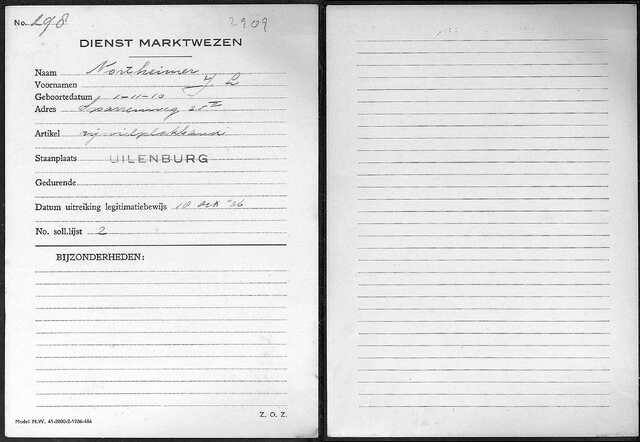 No. 298
2909
DIENST MARKTWEZEN
Naam Northeimer
Voornamen J L
Geboortedatum 1-11-10
Adres Sparrenweg
Artikel
Staanplaats UILENBURG
Gedurende
Datum uitreiking legitimatiebewijs 10 oct '36
No. soll.lijst 2
BIJZONDERHEDEN:
Model M.W. 41-2000-3-1936-486
Z. O. Z.